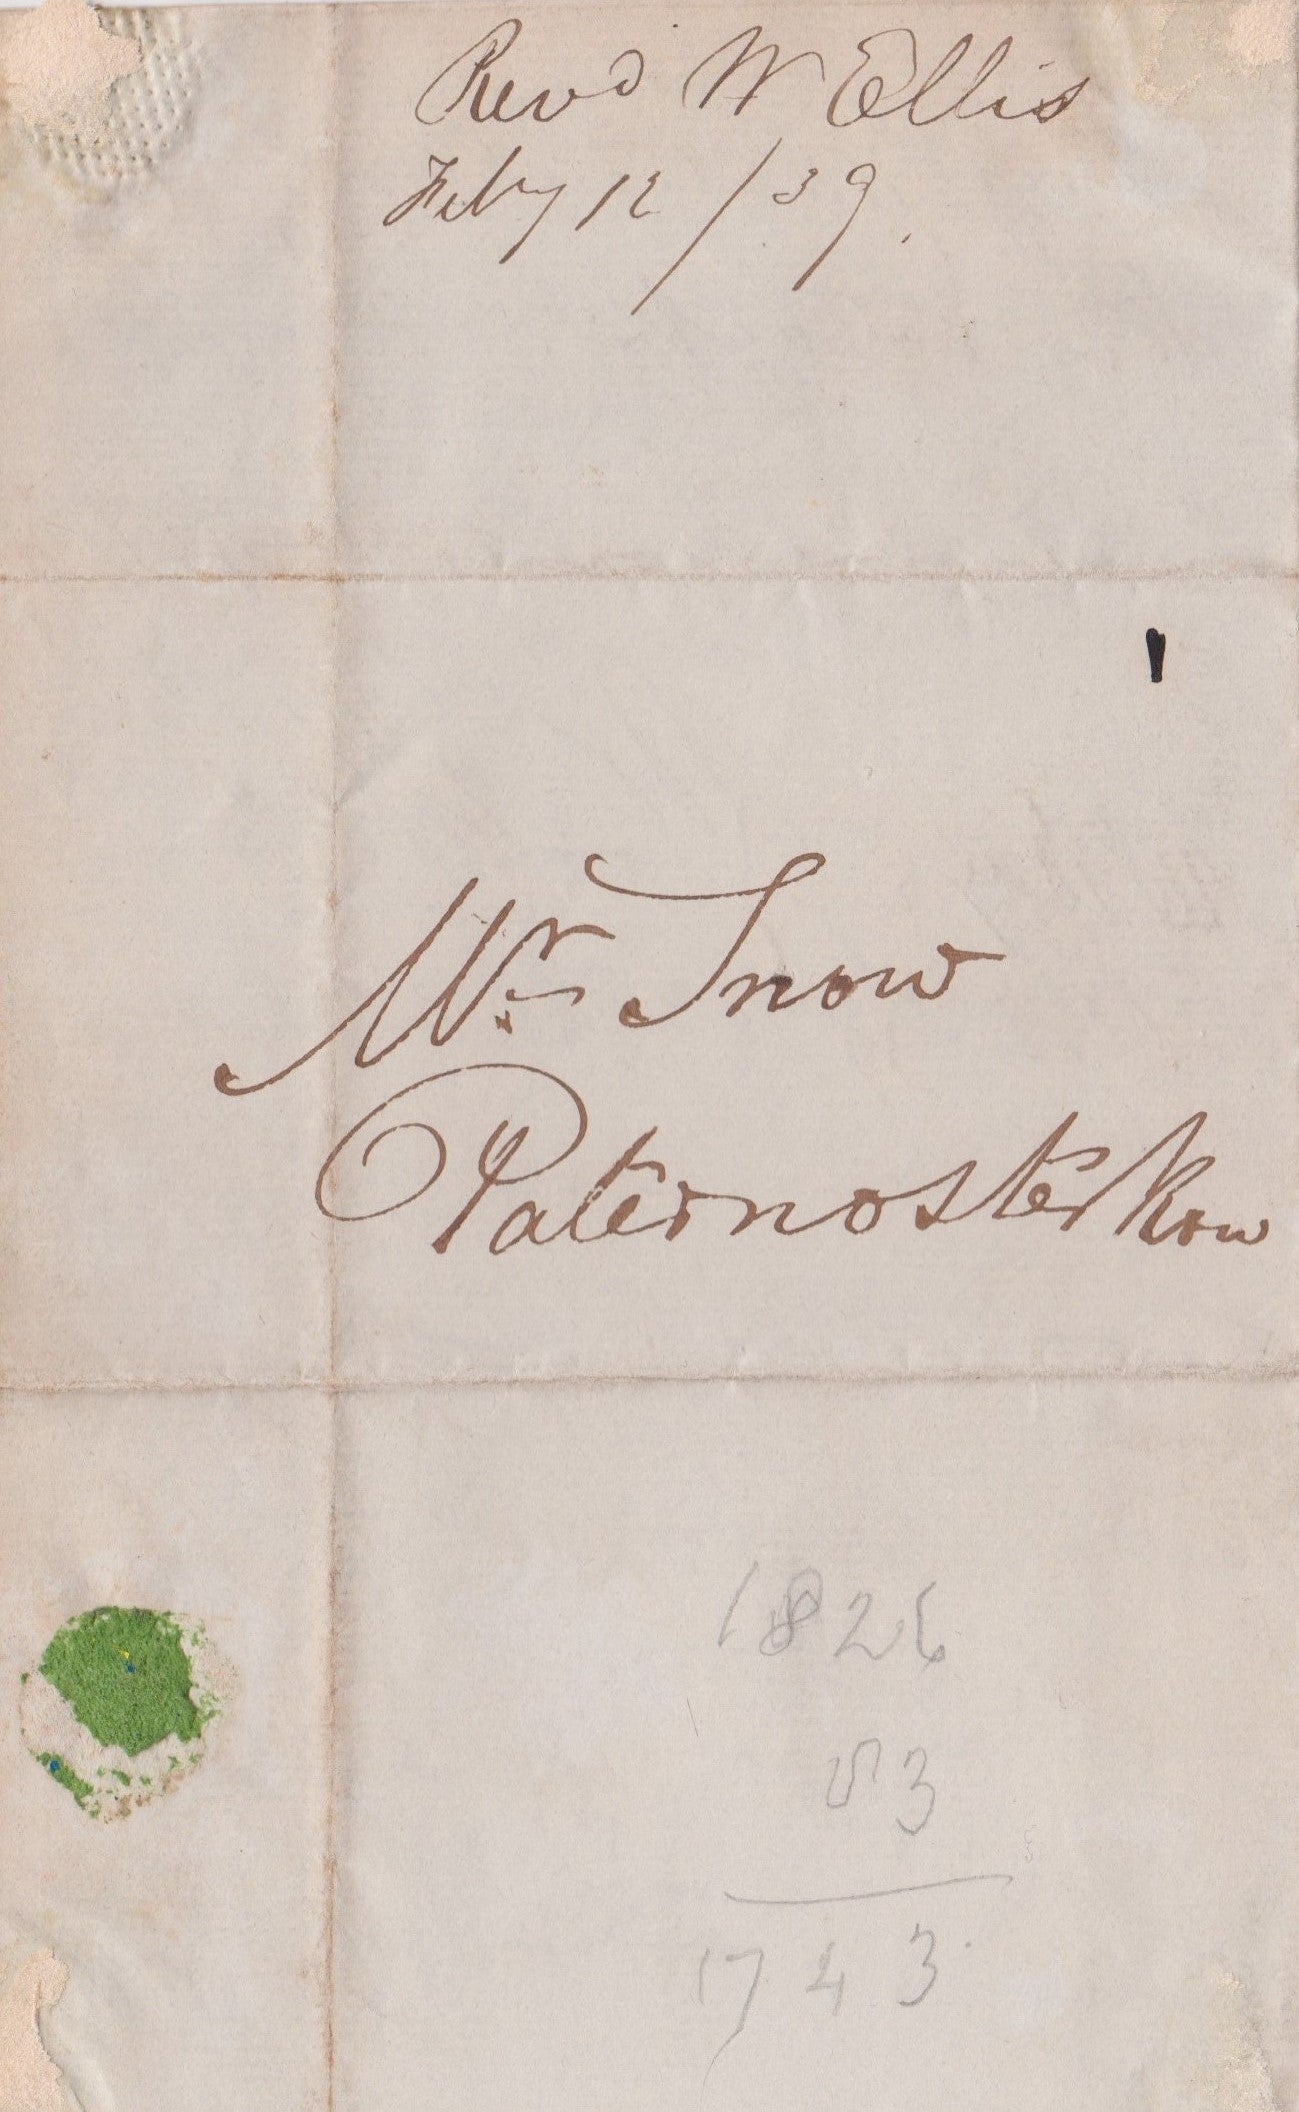 Revd W Ellis
Feby 12 / 39.
Mr Snow
Paternoster Row
1826
83
1743